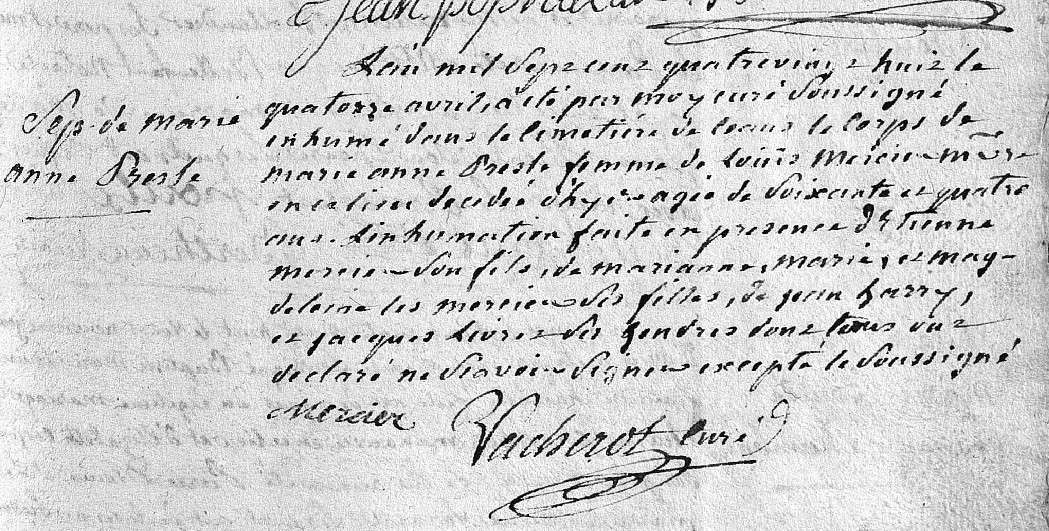 Jean
Sep. de marie
anne Besle
L'an mil Sept cent quatrevingt huit le
quatorze avril, a été par moy curé Soussigné
inhumé dans le Cimetiére de Ceans le Corps de
marie anne Besle femme de Loüis Mercier
en ce lieu decedée d'hyer agée de Soixante et quatre
ans. L'inhumation faite en presence d'Etienne
mercier Son fils, de marianne, marie, et mag-
deleine les mercier Ses filles, de jean harry,
et jacques Livret Ses Gendres dont tous ont
declaré ne Sçavoir Signer excepté le Soussigné
Mercier
Vacherot Curé